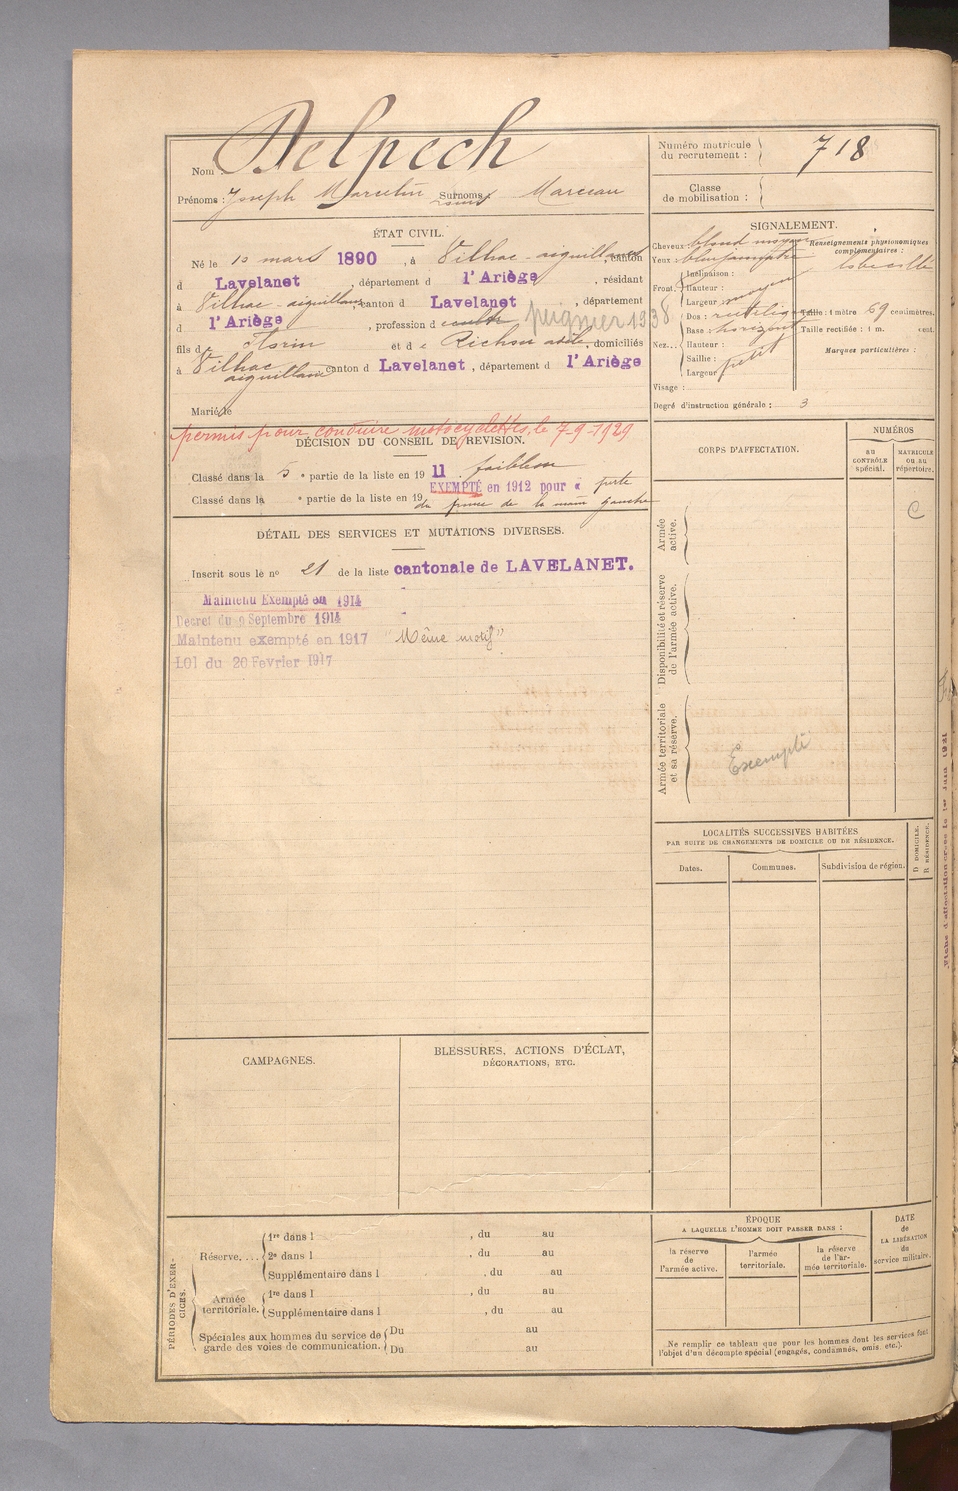 Nom : Delpech
Prénoms : Joseph Marcelin Surnoms : Marceau
Numéro matricule du recrutement : 718
Classe de mobilisation :
ÉTAT CIVIL.
Né le 10 mars 1890, à Vilhac-aiguillanes, canton
d Lavelanet, département d l'Ariège, résidant
à Vilhac-aiguillanes, canton d Lavelanet, département
d l'Ariège, profession d peignier 1938
fils de Florin et de Richou, domiciliés
à Vilhac aiguillanes, canton d Lavelanet, département d l'Ariège
Marié le
permis pour conduire motocyclettes, le 7-9-1929
DÉCISION DU CONSEIL DE REVISION.
Classé dans la 5e partie de la liste en 1911. faiblesse
EXEMPTÉ en 1912 pour « perte
Classé dans la e partie de la liste en 19
du pouce de la main gauche
DÉTAIL DES SERVICES ET MUTATIONS DIVERSES.
Inscrit sous le no 21 de la liste cantonale de LAVELANET.
Maintenu Exempté en 1914
Décret du 9 Septembre 1914
Maintenu exempté en 1917 "Même motif"
LOI du 20 Fevrier 1917
CAMPAGNES.
BLESSURES, ACTIONS D'ÉCLAT,
DÉCORATIONS, ETC.
PÉRIODES D'EXERCICES.
Réserve....
1re dans l , du au
2e dans l , du au
Supplémentaire dans l , du au
Armée territoriale.
1re dans l , du au
Supplémentaire dans l , du au
Spéciales aux hommes du service de garde des voies de communication.
Du au
Du au
SIGNALEMENT.
Cheveux : blond moyen
Yeux :
Renseignements physionomiques complémentaires :
Front.
Inclinaison :
Hauteur :
Largeur : moyen
Nez..
Dos : rectiligne
Base : horizont
Hauteur :
Saillie :
Largeur : petit
Taille : 1 mètre 69 centimètres.
Taille rectifiée : 1 m. cent.
Marques particulières :
Visage :
Degré d'instruction générale : 3
CORPS D'AFFECTATION.
NUMÉROS
au CONTRÔLE spécial.
MATRICULE ou au répertoire.
C
Armée active.
Disponibilité et réserve de l'armée active.
Armée territoriale et sa réserve.
Exempté
LOCALITÉS SUCCESSIVES HABITÉES
PAR SUITE DE CHANGEMENTS DE DOMICILE OU DE RÉSIDENCE.
Dates.
Communes.
Subdivision de région.
D DOMICILE.
R RÉSIDENCE.
ÉPOQUE
A LAQUELLE L'HOMME DOIT PASSER DANS :
la réserve de l'armée active.
l'armée territoriale.
la réserve de l'armée territoriale.
DATE de LA LIBÉRATION du service militaire.
Ne remplir ce tableau que pour les hommes dont les services font
l'objet d'un décompte spécial (engagés, condamnés, omis, etc.).